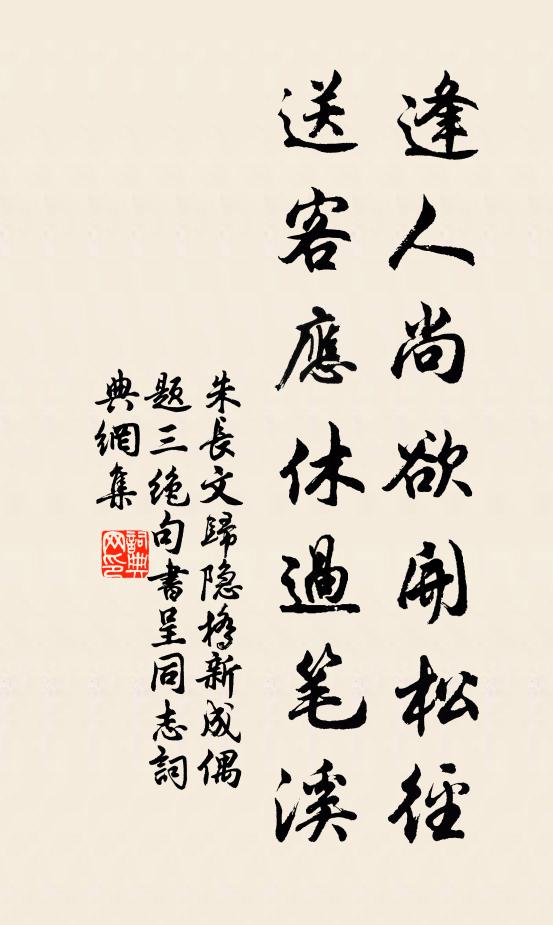 逢人尚欲開松徑
送客應休過笔溪
朱長文歸隐橋新成偶
题三绝句書呈同志詞
典網集
詞典網印